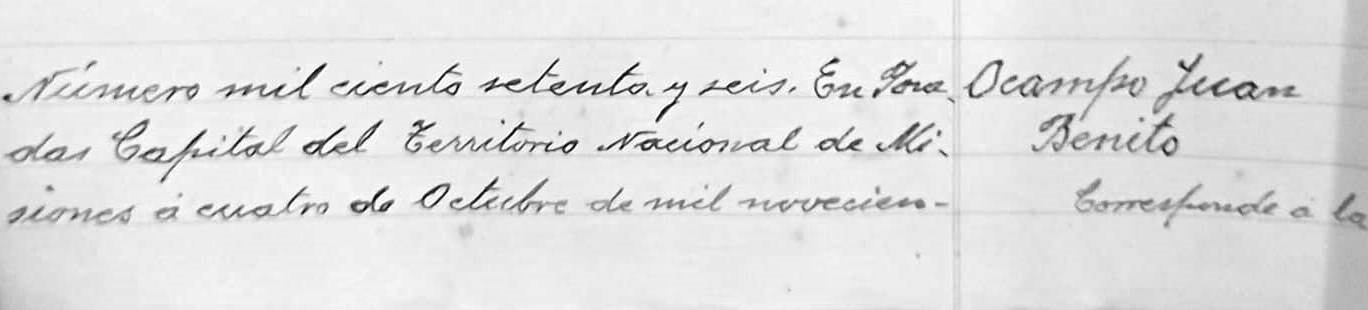 Número mil ciento setenta y seis. En Posa-
das Capital del Territorio Nacional de Mi-
siones á cuatro de Octubre de mil novecien-
Ocampo Juan
Benito
Corresponde á la